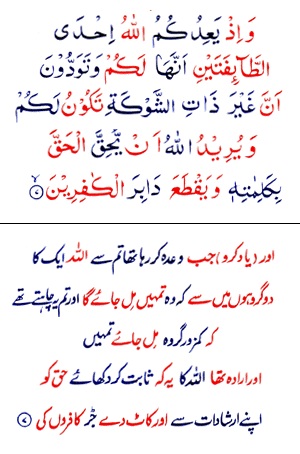 وَاِذْ يَعِدُكُمُ اللّٰهُ اِحْدَى
الطَّآئِفَتَيْنِ اَنَّهَا لَكُمْ وَتَوَدُّوْنَ
اَنَّ غَيْرَ ذَاتِ الشَّوْكَةِ تَكُوْنُ لَكُمْ
وَيُرِيْدُ اللّٰهُ اَنْ يُّحِقَّ الْحَقَّ
بِكَلِمٰتِهٖ وَيَقْطَعَ دَابِرَ الْكٰفِرِيْنَ ۷
اور (یاد کرو) جب وعدہ کر رہا تھا تم سے اللہ ایک کا
دو گروہوں میں سے کہ وہ تمہیں مل جائے گا اور تم یہ چاہتے تھے
کہ کمزور گروہ مل جائے تمہیں
اور ارادہ تھا اللہ کا یہ کہ ثابت کر دکھائے حق کو
اپنے ارشادات سے اور کاٹ دے جڑ کافروں کی ۷